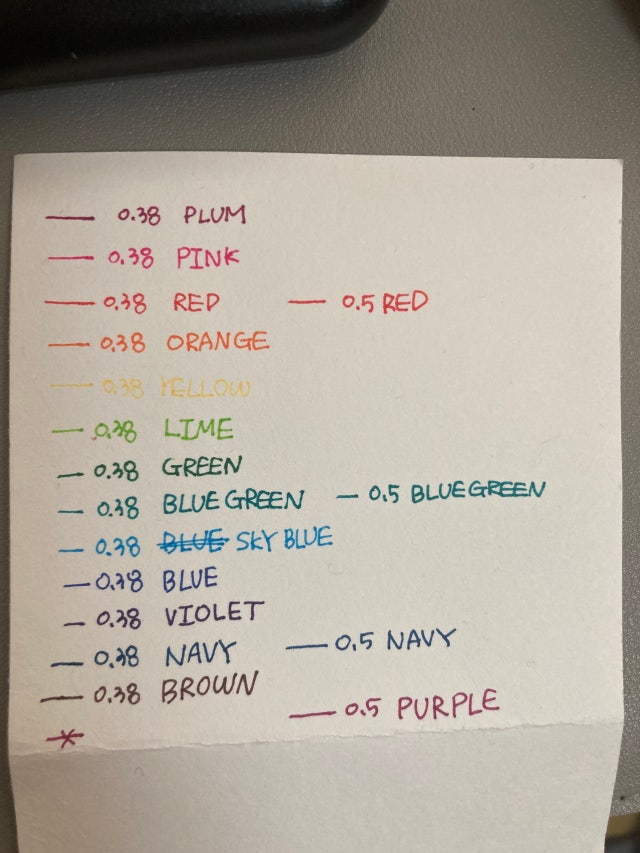 0.38 PLUM
0.38 PINK
0.38 RED 0.5 RED
0.38 ORANGE
0.38 YELLOW
0.38 LIME
0.38 GREEN
0.38 BLUE GREEN 0.5 BLUEGREEN
0.38 BLUE SKY BLUE
0.38 BLUE
0.38 VIOLET
0.38 NAVY 0.5 NAVY
0.38 BROWN
0.5 PURPLE